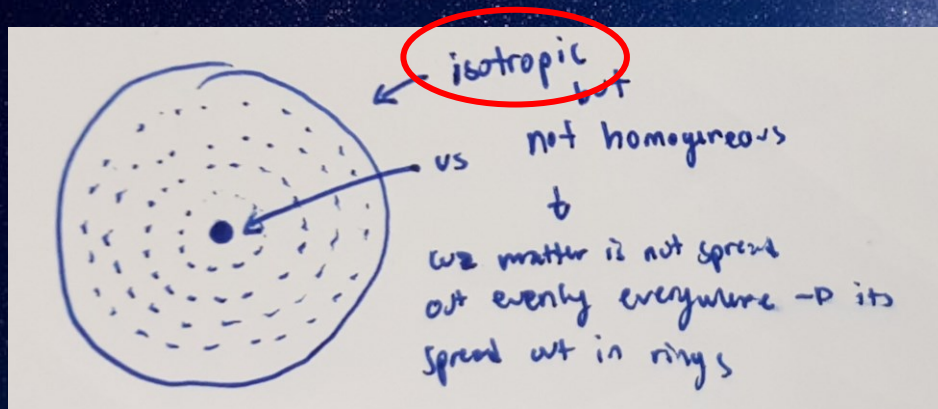 isotropic
but
not homogeneous
us
cuz matter is not spread
out evenly everywhere → its
spread out in rings